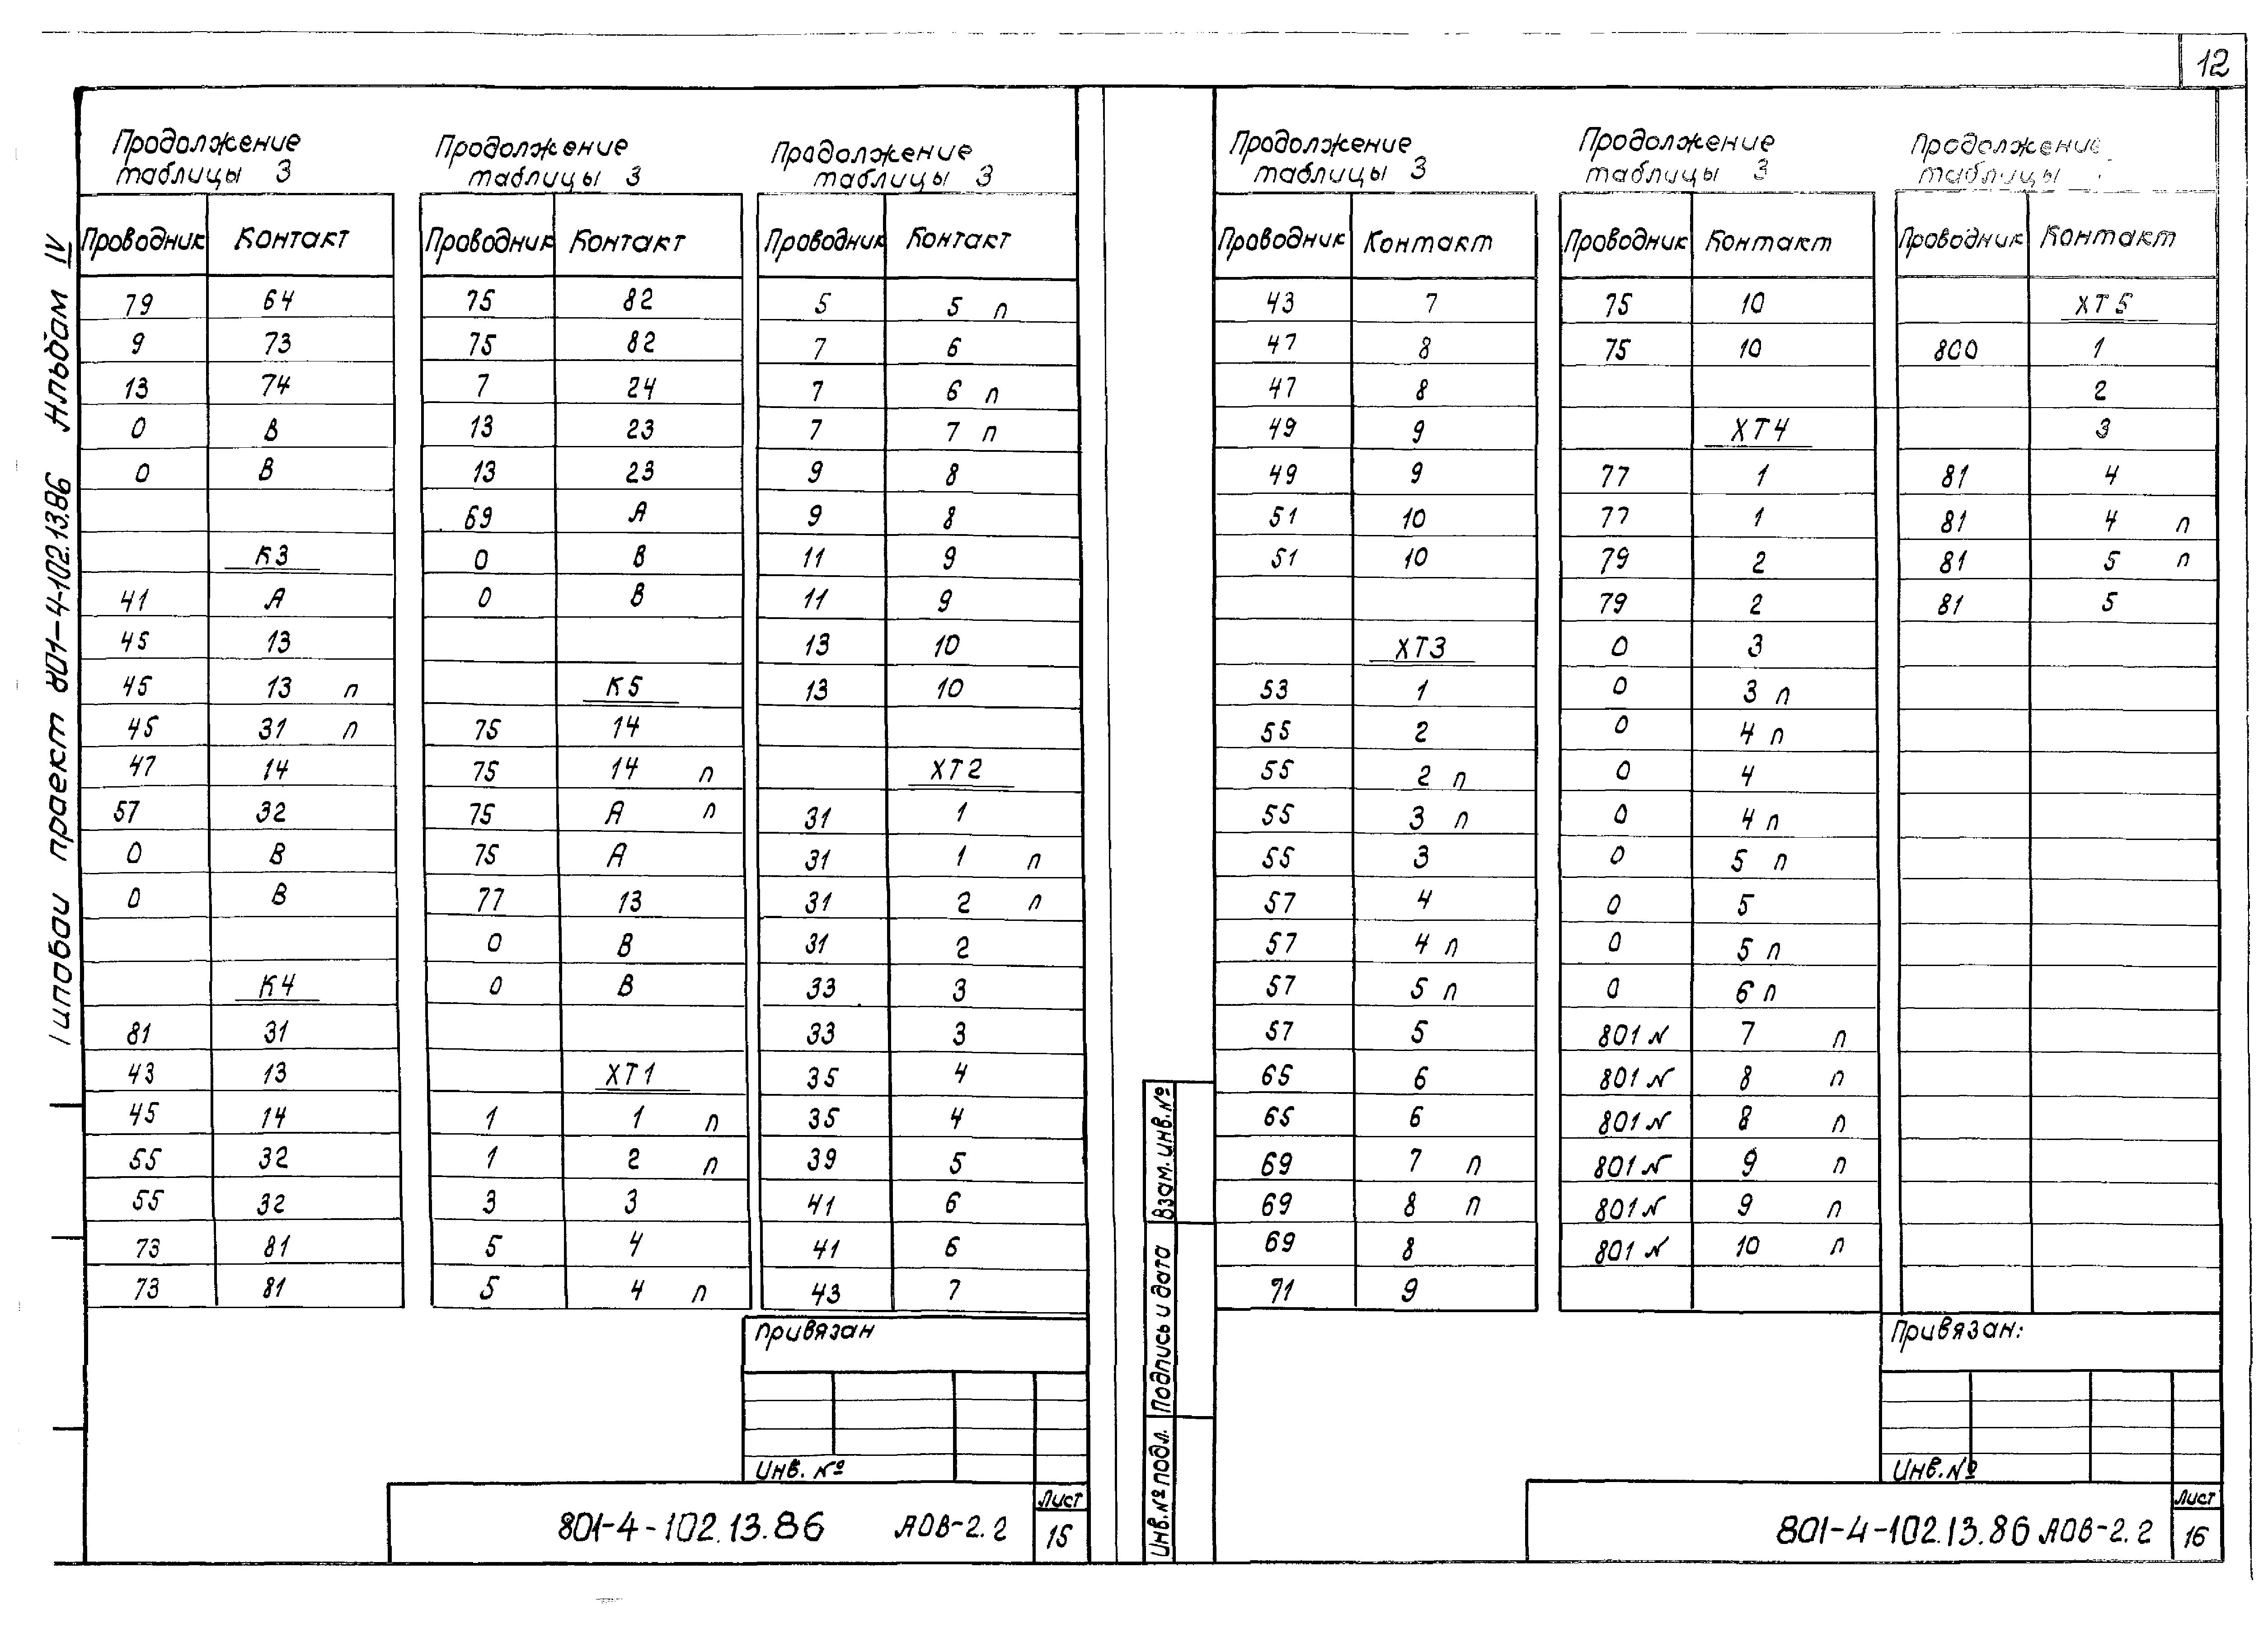 12
Типовой проект 801-4-102.13.86 Альбом IV
Продолжение
таблицы 3
Проводник Контакт
79 64
9 73
13 74
0 В
0 В
К3
41 А
45 13
45 13 п
45 31 п
47 14
57 32
0 В
0 В
К4
81 31
43 13
45 14
55 32
55 32
73 81
73 81
Продолжение
таблицы 3
Проводник Контакт
75 82
75 82
7 24
13 23
13 23
69 А
0 В
0 В
К5
75 14
75 14 п
75 А п
75 А
77 13
0 В
0 В
ХТ1
1 1 п
1 2 п
3 3
5 4
5 4 п
Продолжение
таблицы 3
Проводник Контакт
5 5 п
7 6
7 6 п
7 7 п
9 8
9 8
11 9
11 9
13 10
13 10
ХТ2
31 1
31 1 п
31 2 п
31 2
33 3
33 3
35 4
35 4
39 5
41 6
41 6
43 7
Привязан
Инв. №
801-4-102.13.86 АОВ-2.2
Лист
15
Продолжение
таблицы 3
Проводник Контакт
43 7
47 8
47 8
49 9
49 9
51 10
51 10
ХТ3
53 1
55 2
55 2 п
55 3 п
55 3
57 4
57 4 п
57 5 п
57 5
65 6
65 6
69 7 п
69 8 п
69 8
71 9
Продолжение
таблицы 3
Проводник Контакт
75 10
75 10
ХТ4
77 1
77 1
79 2
79 2
0 3
0 3 п
0 4 п
0 4
0 4 п
0 5 п
0 5
0 5 п
0 6 п
801N 7 п
801N 8 п
801N 8 п
801N 9 п
801N 9 п
801N 10 п
Продолжение
таблицы
Проводник Контакт
ХТ5
800 1
2
3
81 4
81 4 п
81 5 п
81 5
Взам. инв. №
Подпись и дата
Инв. № подл.
Привязан:
Инв. №
801-4-102.13.86 АОВ-2.2
Лист
16